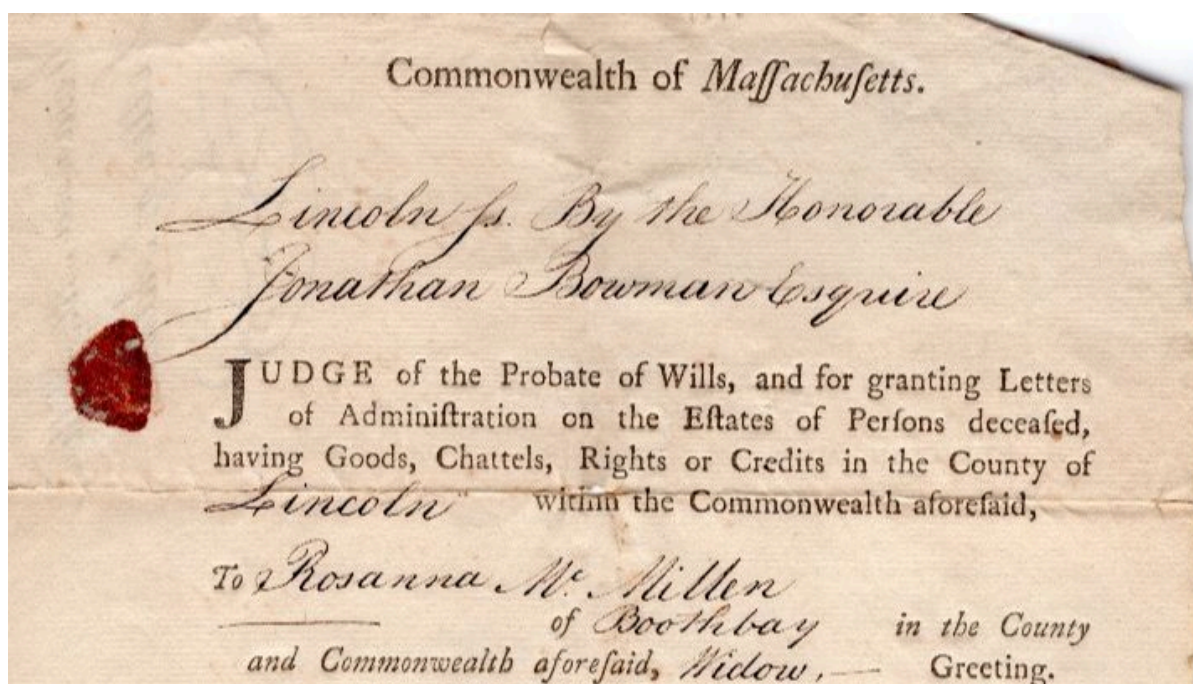 Commonwealth of Maſſachuſetts.
Lincoln ſs. By the Honorable
Jonathan Bowman Esquire
JUDGE of the Probate of Wills, and for granting Letters
of Adminiſtration on the Eſtates of Perſons deceaſed,
having Goods, Chattels, Rights or Credits in the County of
Lincoln within the Commonwealth aforeſaid,
To Rosanna Mc. Millen
of Boothbay in the County
and Commonwealth aforeſaid, Widow, — Greeting.